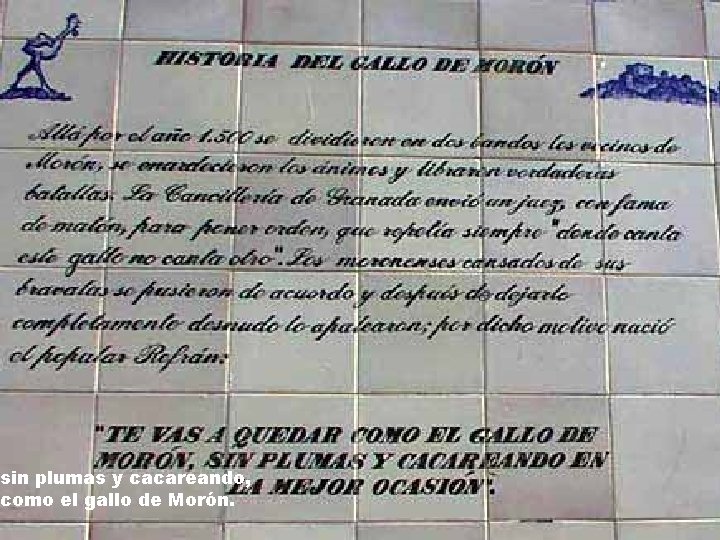 HISTORIA DEL GALLO DE MORÓN
Allá por el año 1.500 se dividieron en dos bandos los vecinos de
Morón, se enardecieron los ánimos y libraron verdaderas
batallas. La Cancillería de Granada envió un juez, con fama
de matón, para poner orden, que repetía siempre "donde canta
este gallo no canta otro". Los moronenses cansados de sus
bravatas se pusieron de acuerdo y después de dejarlo
completamente desnudo lo apalearon; por dicho motivo nació
el popular Refrán:
"TE VAS A QUEDAR COMO EL GALLO DE
MORÓN, SIN PLUMAS Y CACAREANDO EN
LA MEJOR OCASIÓN".
sin plumas y cacareando,
como el gallo de Morón.